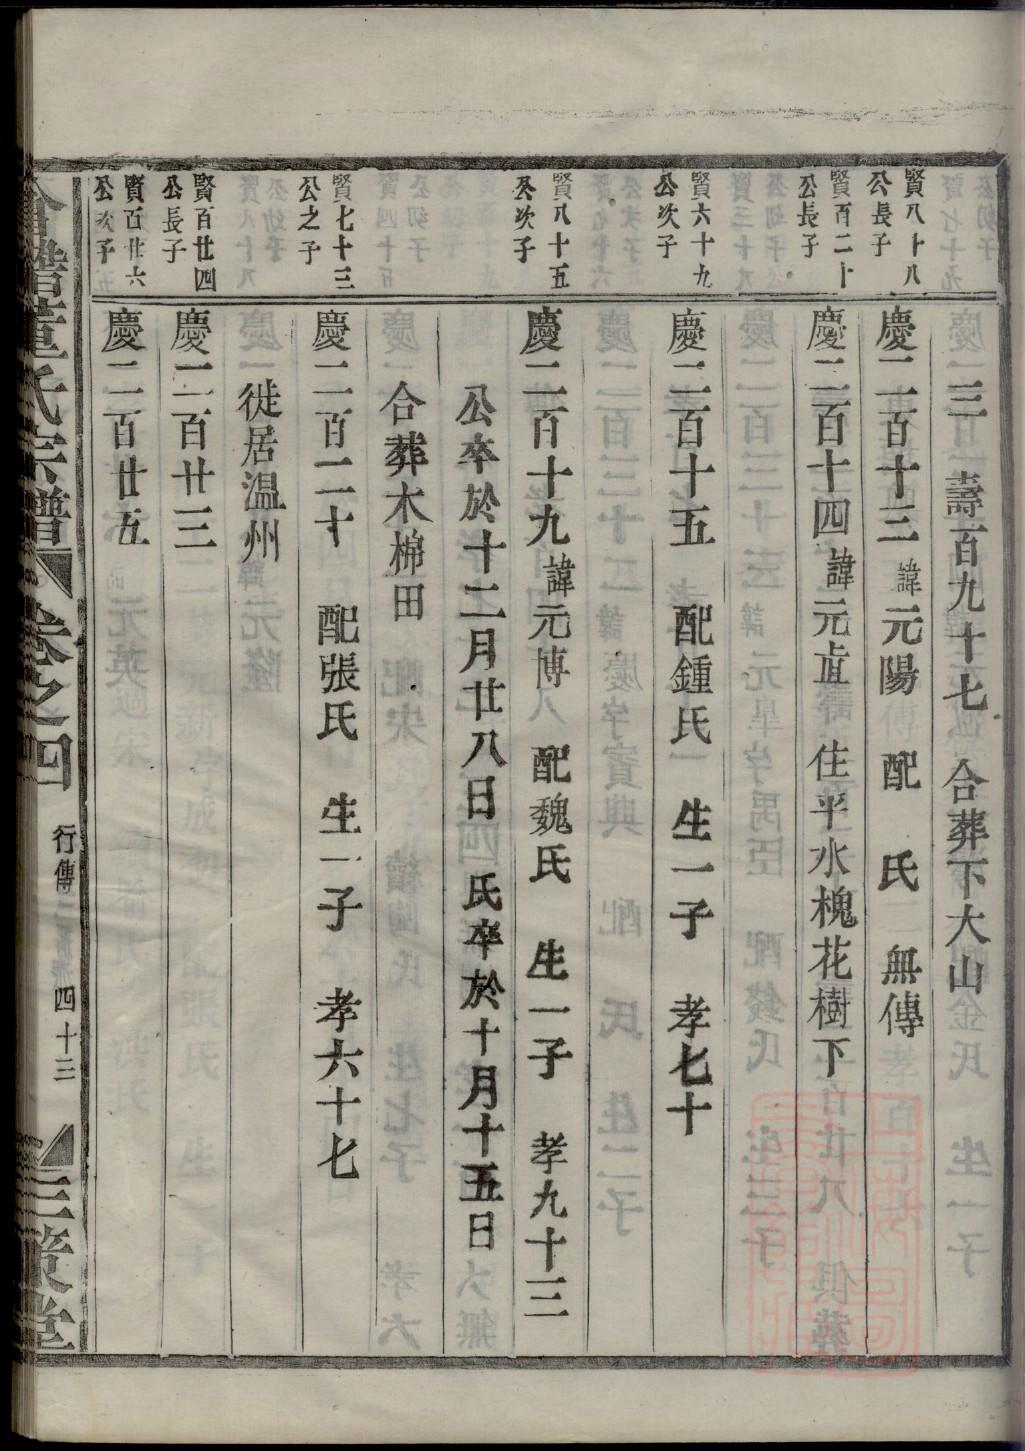 三　壽百九十七　合葬下大山
賢八十八
公長子
慶二百十三　諱元陽　配　氏　無傳
賢百二十
公長子
慶二百十四　諱元直　住平水槐花樹下
賢六十九
公次子
慶二百十五　配鍾氏　生一子　孝七十
賢八十五
公次子
慶二百十九　諱元博　配魏氏　生一子　孝九十三
公卒於十二月廿八日　氏卒於十月十五日
合葬木棉田
賢七十三
公之子
慶二百二十　配張氏　生一子　孝六十七
徙居温州
賢百廿四
公長子
慶二百廿三
賢百廿六
公次子
慶二百廿五
會稽董氏宗譜　卷之四　行傳　四十三　三策堂